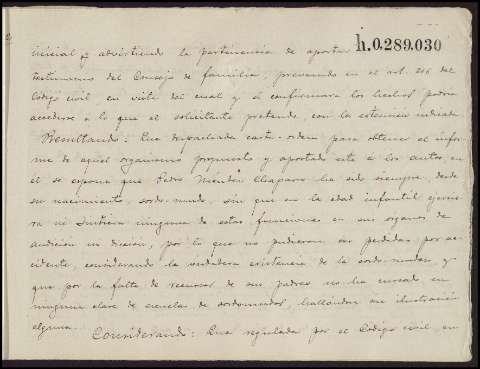 h.0.289.030
inicial y advirtiendo la pertinencia de aportar
testimonio del Consejo de familia, prevenido en el art. 216 del
Código civil, en vista del cual y si confirmara los hechos podría
accederse a lo que el solicitante pretende, con la extension indicada
Resultando: Que despachada carta-orden para obtener el infor-
me de aquel organismo propuesto y aportado este a los autos, en
él se expone que Pedro Chaparro ha sido siempre, desde
su nacimiento, sordo-mudo, sin que en la edad infantil ejercie-
ra ni tuviera ninguna de estas funciones en sus órganos de
audición ni dicción, por lo que no pudieron ser perdidas por ac-
cidente, considerando la verdadera existencia de la sordo-mudez, y
que por la falta de recursos de sus padres no ha cursado en
ninguna clase de escuelas de sordomudos, hallándose sin ilustración
alguna.
Considerando: Que regulada por el Código civil, en